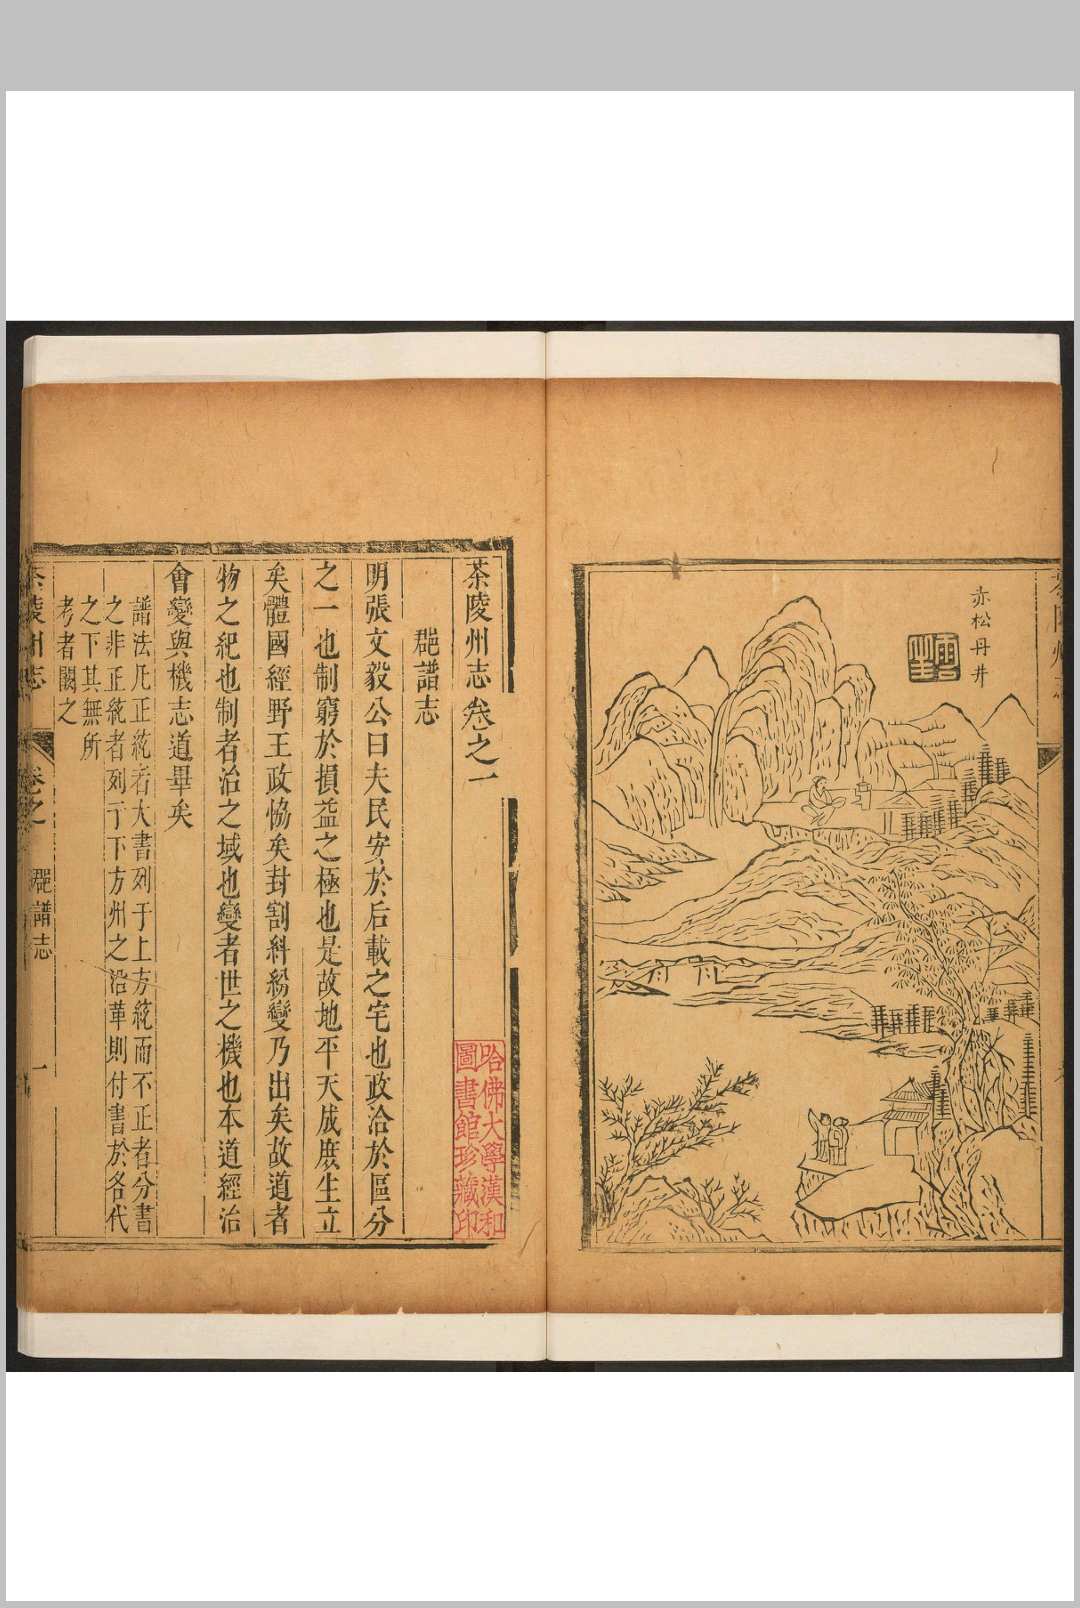 赤松丹井
茶陵州志卷之一
郡譜志
明張文毅公曰夫民安於后載之宅也政洽於區分
之一也制窮於損益之極也是故地平天成庶生立
矣體國經野王政恊矣封割糾紛變乃出矣故道者
物之紀也制者治之域也變者世之機也本道經治
會變與機志道畢矣
譜法凡正統者大書列于上方統而不正者分書
之非正統者列于下方州之沿革則付書於各代
之下其無所
考者闕之
茶陵州志
卷之一
郡譜志
一
哈佛大學漢和
圖書館珍藏印